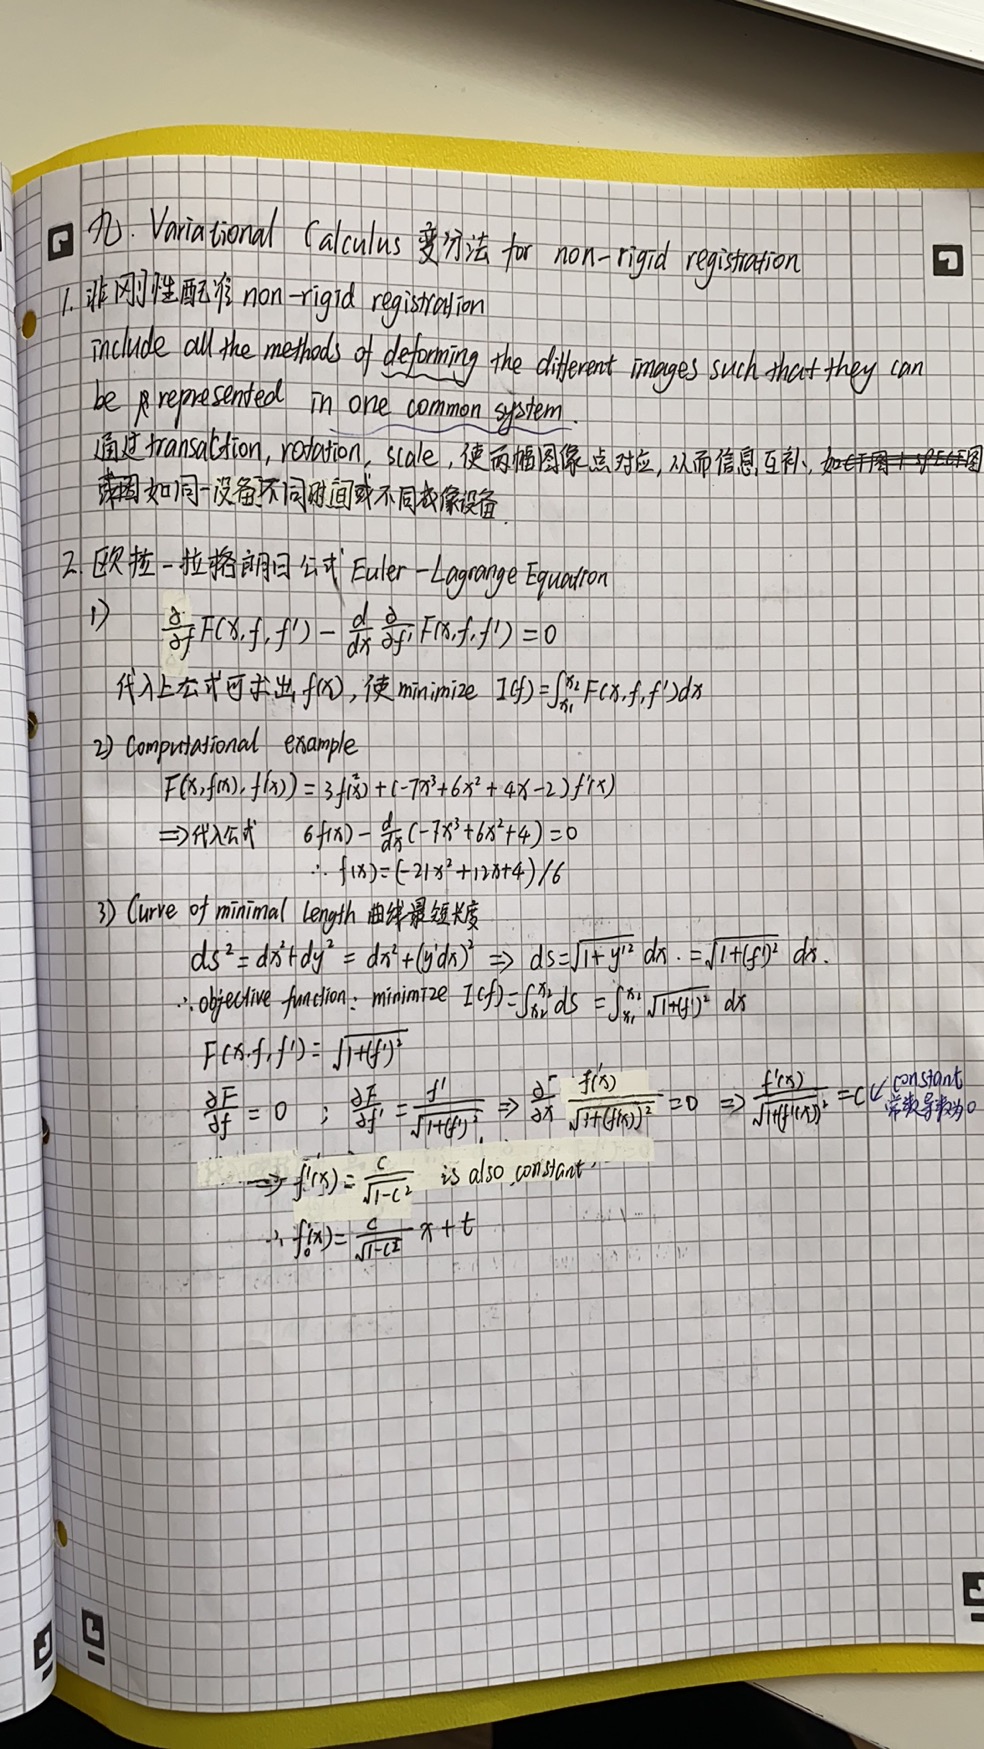 九. Variational Calculus 变分法 for non-rigid registration
1. 非刚性配准 non-rigid registration
include all the methods of deforming the different images such that they can
be represented in one common system.
通过transaltion, rotation, scale, 使两幅图像点对应, 从而信息互补, 如CT图+SPECT图
如同一设备不同时间或不同成像设备.
2. 欧拉-拉格朗日公式 Euler-Lagrange Equation
1)
∂/∂f F(x, f, f') - d/dx ∂/∂f' F(x, f, f') = 0
代入上公式可求出 f(x), 使 minimize I(f) = ∫_{x₁}^{x₂} F(x, f, f')dx
2) Computational example
F(x, f(x), f'(x)) = 3f(x)² + (-7x³+6x²+4x-2) f'(x)
⇒ 代入公式 6f(x) - d/dx (-7x³+6x²+4) = 0
∴ f(x) = (-21x²+12x+4)/6
3) Curve of minimal Length 曲线最短长度
ds² = dx²+dy² = dx²+(y'dx)² ⇒ ds = √(1+y'²) dx. = √(1+(f')²) dx.
∴ objective function: minimize I(f) = ∫_{x₂}^{x₂} ds = ∫_{x₁}^{x₂} √(1+(f')²) dx
F(x, f, f') = √(1+(f')²)
∂F/∂f = 0 ; ∂F/∂f' = f'/√(1+(f')²) ⇒ ∂/∂x f'(x)/√(1+(f'(x))²) = 0 ⇒ f'(x)/√(1+(f'(x))²) = C ↙ constant
常数导数为0
⇒ f'(x) = c/√(1-c²) is also constant.
∴ f₀(x) = c/√(1-c²) x + t